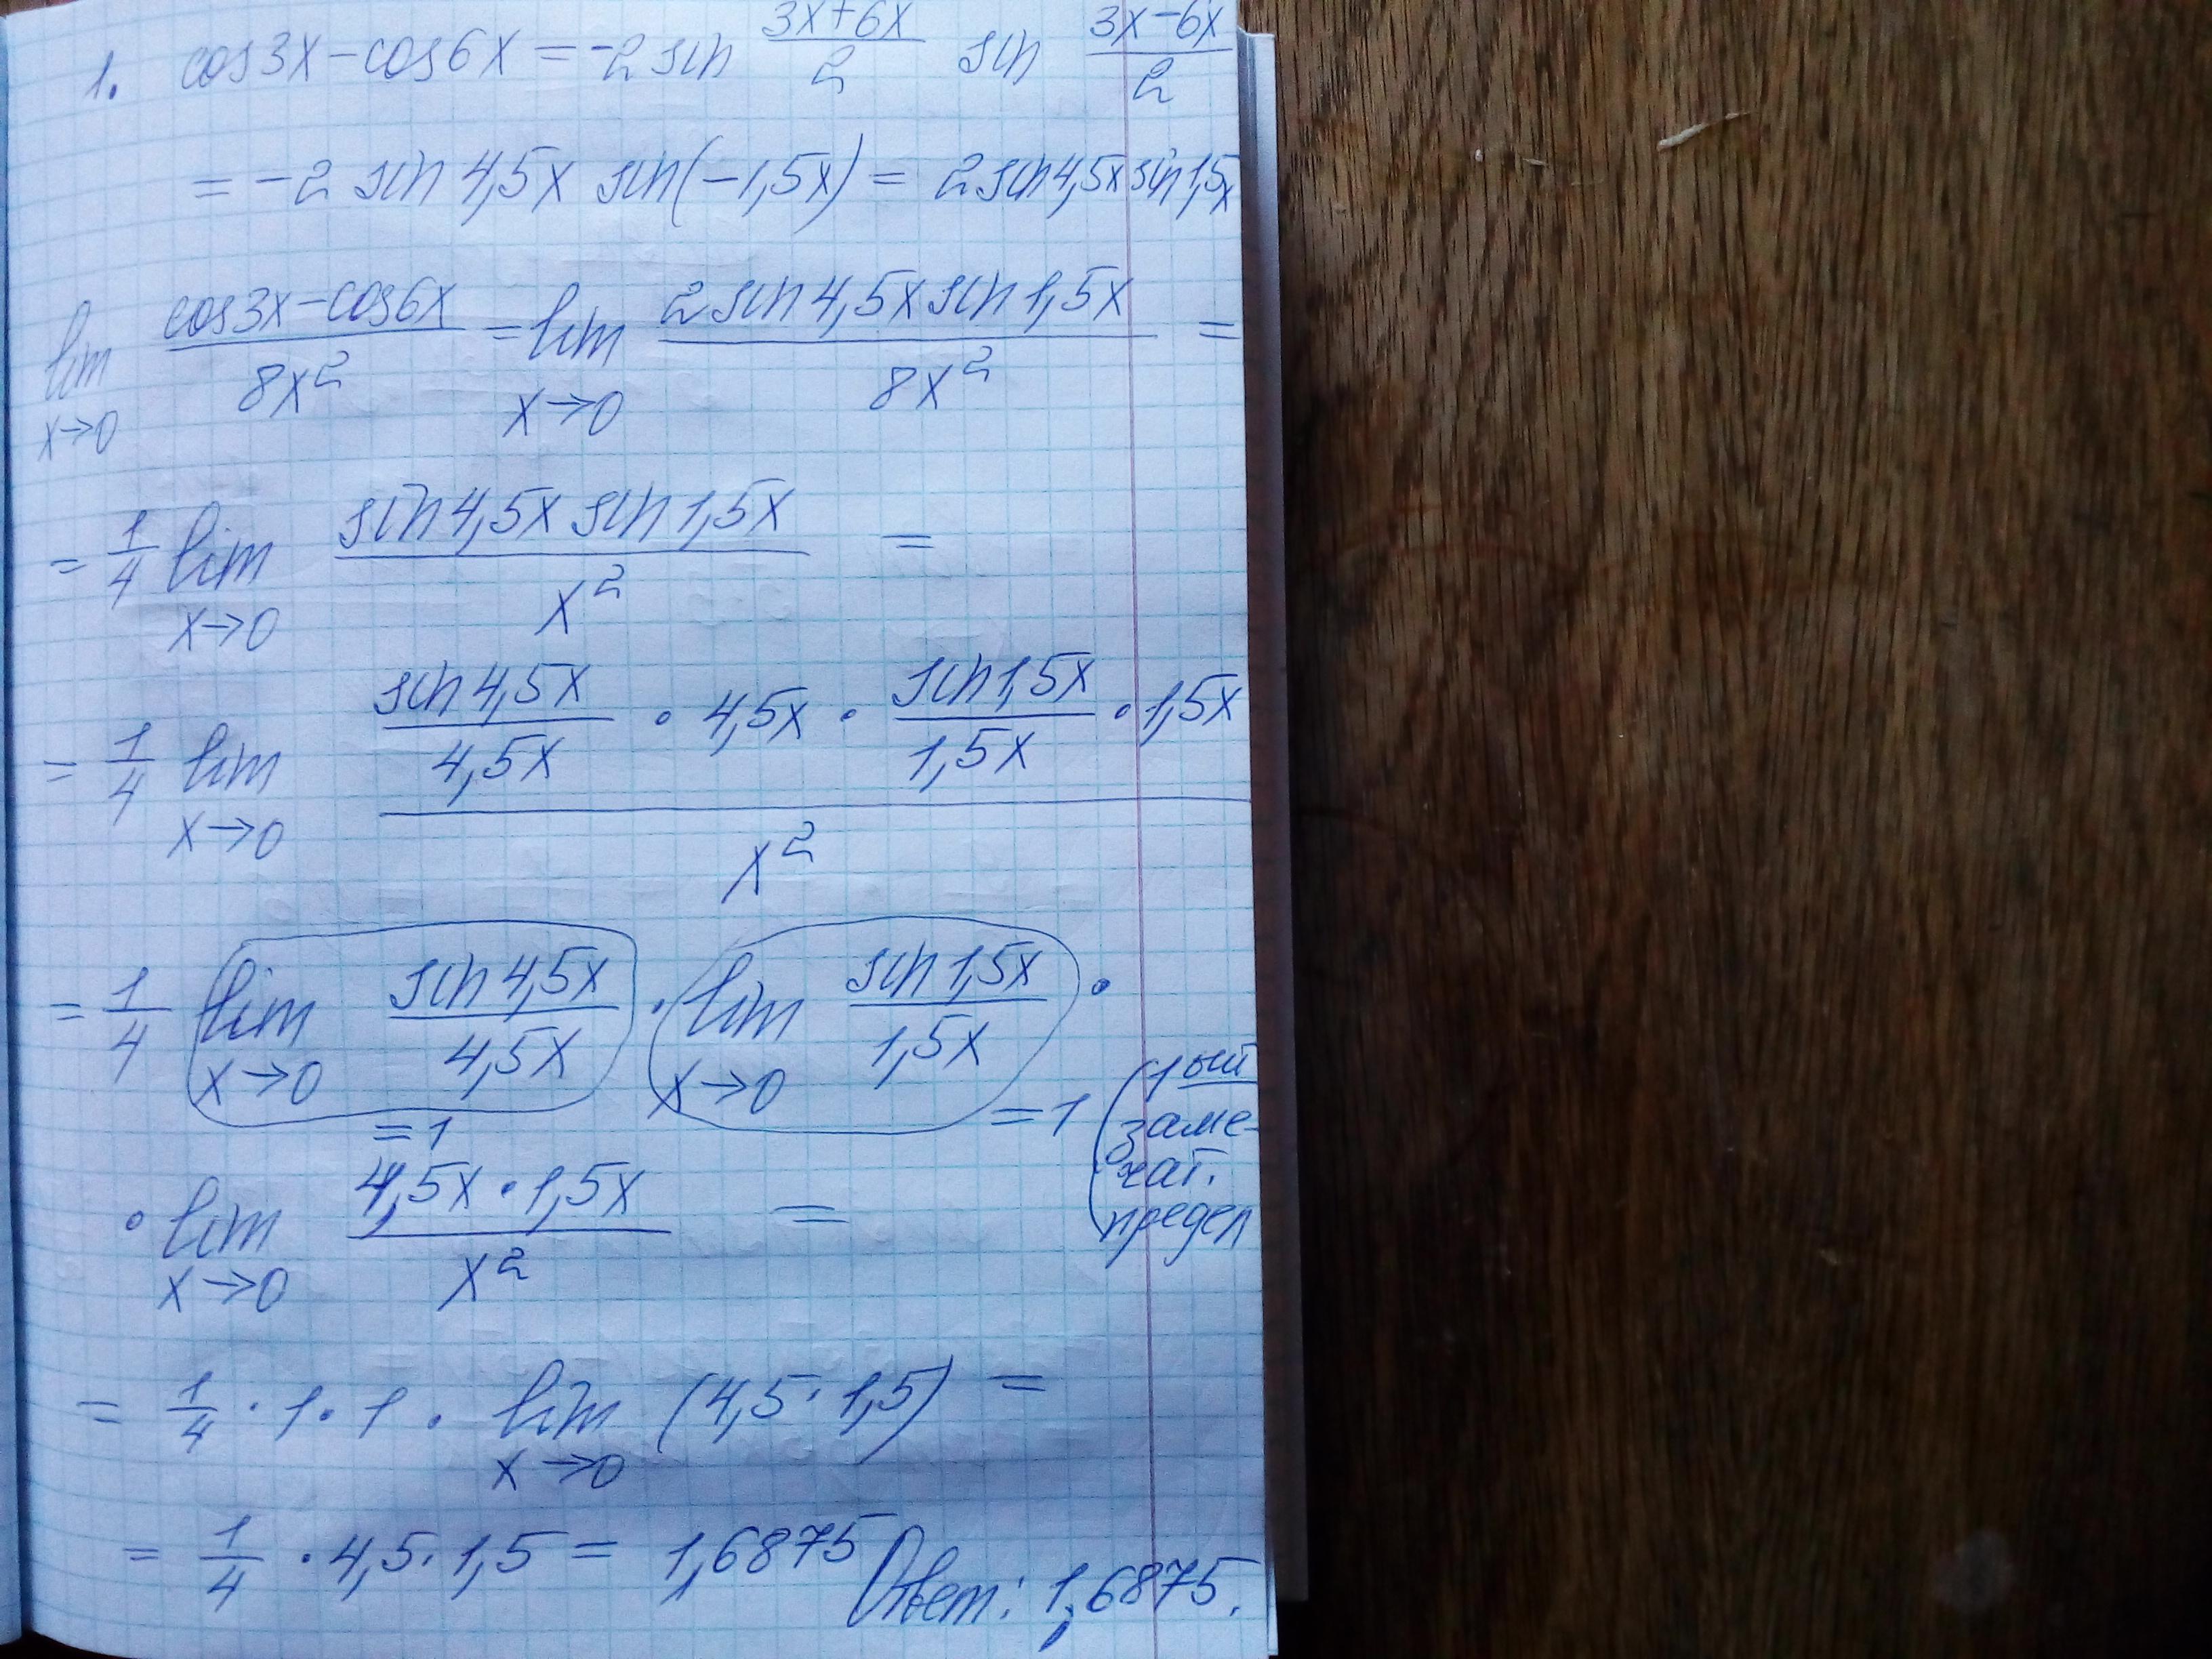 1. cos3x-cos6x=-2sin (3x+6x)/2 sin (3x-6x)/2
= -2 sin 4,5x sin(-1,5x) = 2sin4,5x sin1,5x
lim x→0 (cos3x-cos6x)/(8x²) = lim x→0 (2sin4,5x sin1,5x)/(8x²) =
= 1/4 lim x→0 (sin4,5x sin1,5x)/x² =
= 1/4 lim x→0 ((sin4,5x)/(4,5x) · 4,5x · (sin1,5x)/(1,5x) · 1,5x)/x²
= 1/4 lim x→0 (sin4,5x)/(4,5x) · lim x→0 (sin1,5x)/(1,5x) ·
=1
=1 (1ый
замe-
чат.
предел
· lim x→0 (4,5x · 1,5x)/x² =
= 1/4 · 1 · 1 · lim x→0 (4,5 · 1,5) =
= 1/4 · 4,5 · 1,5 = 1,6875
Ответ: 1,6875.